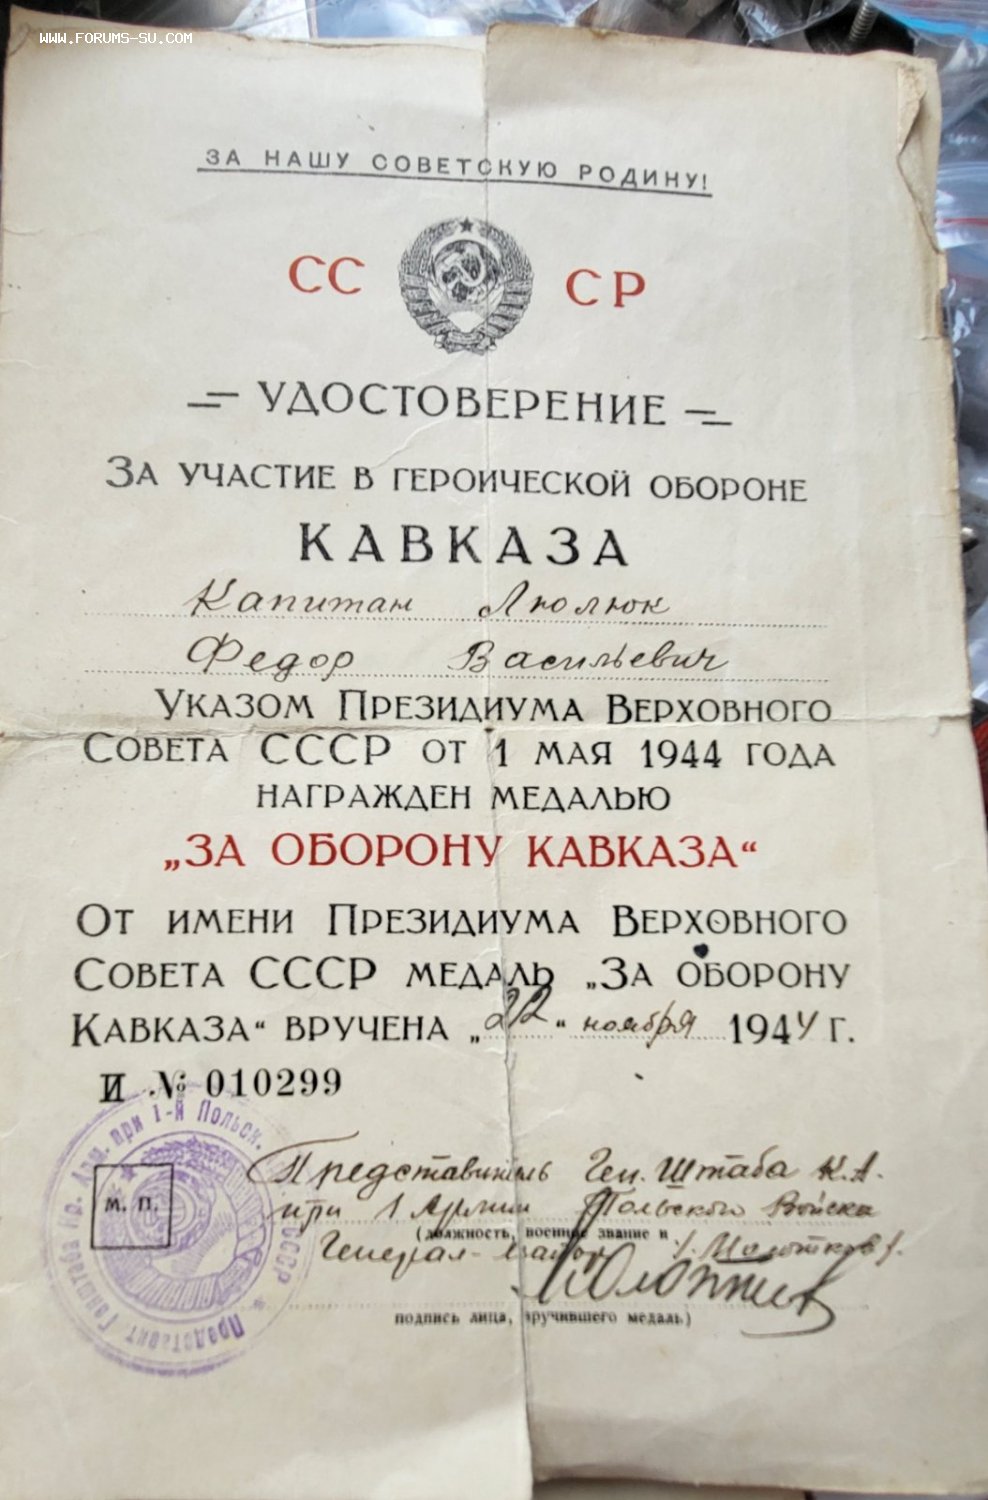 WWW.FORUMS-SU.COM
ЗА НАШУ СОВЕТСКУЮ РОДИНУ!
СС СР
УДОСТОВЕРЕНИЕ
ЗА УЧАСТИЕ В ГЕРОИЧЕСКОЙ ОБОРОНЕ
КАВКАЗА
Капитан Люлюк
Федор Васильевич
УКАЗОМ ПРЕЗИДИУМА ВЕРХОВНОГО
СОВЕТА СССР ОТ 1 МАЯ 1944 ГОДА
НАГРАЖДЕН МЕДАЛЬЮ
„ЗА ОБОРОНУ КАВКАЗА“
ОТ ИМЕНИ ПРЕЗИДИУМА ВЕРХОВНОГО
СОВЕТА СССР МЕДАЛЬ „ЗА ОБОРОНУ
КАВКАЗА“ ВРУЧЕНА „22“ ноября 1944 г.
И № 010299
Представитель Ген. Штаба К.А.
при 1 Армии Польского Войска
(должность, военное звание и
Генерал-майор /Молотков/.
подпись лица, вручившего медаль)
М. П.
Представит Генштаба Кр. Арм. при 1-й Польск. СССР